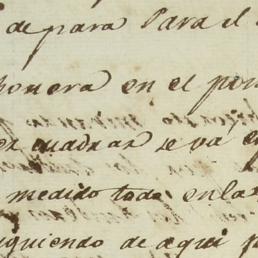 de para Para el
honera en el pon
es cuadrar se va en
medido todo en la
siguiendo de aqui p